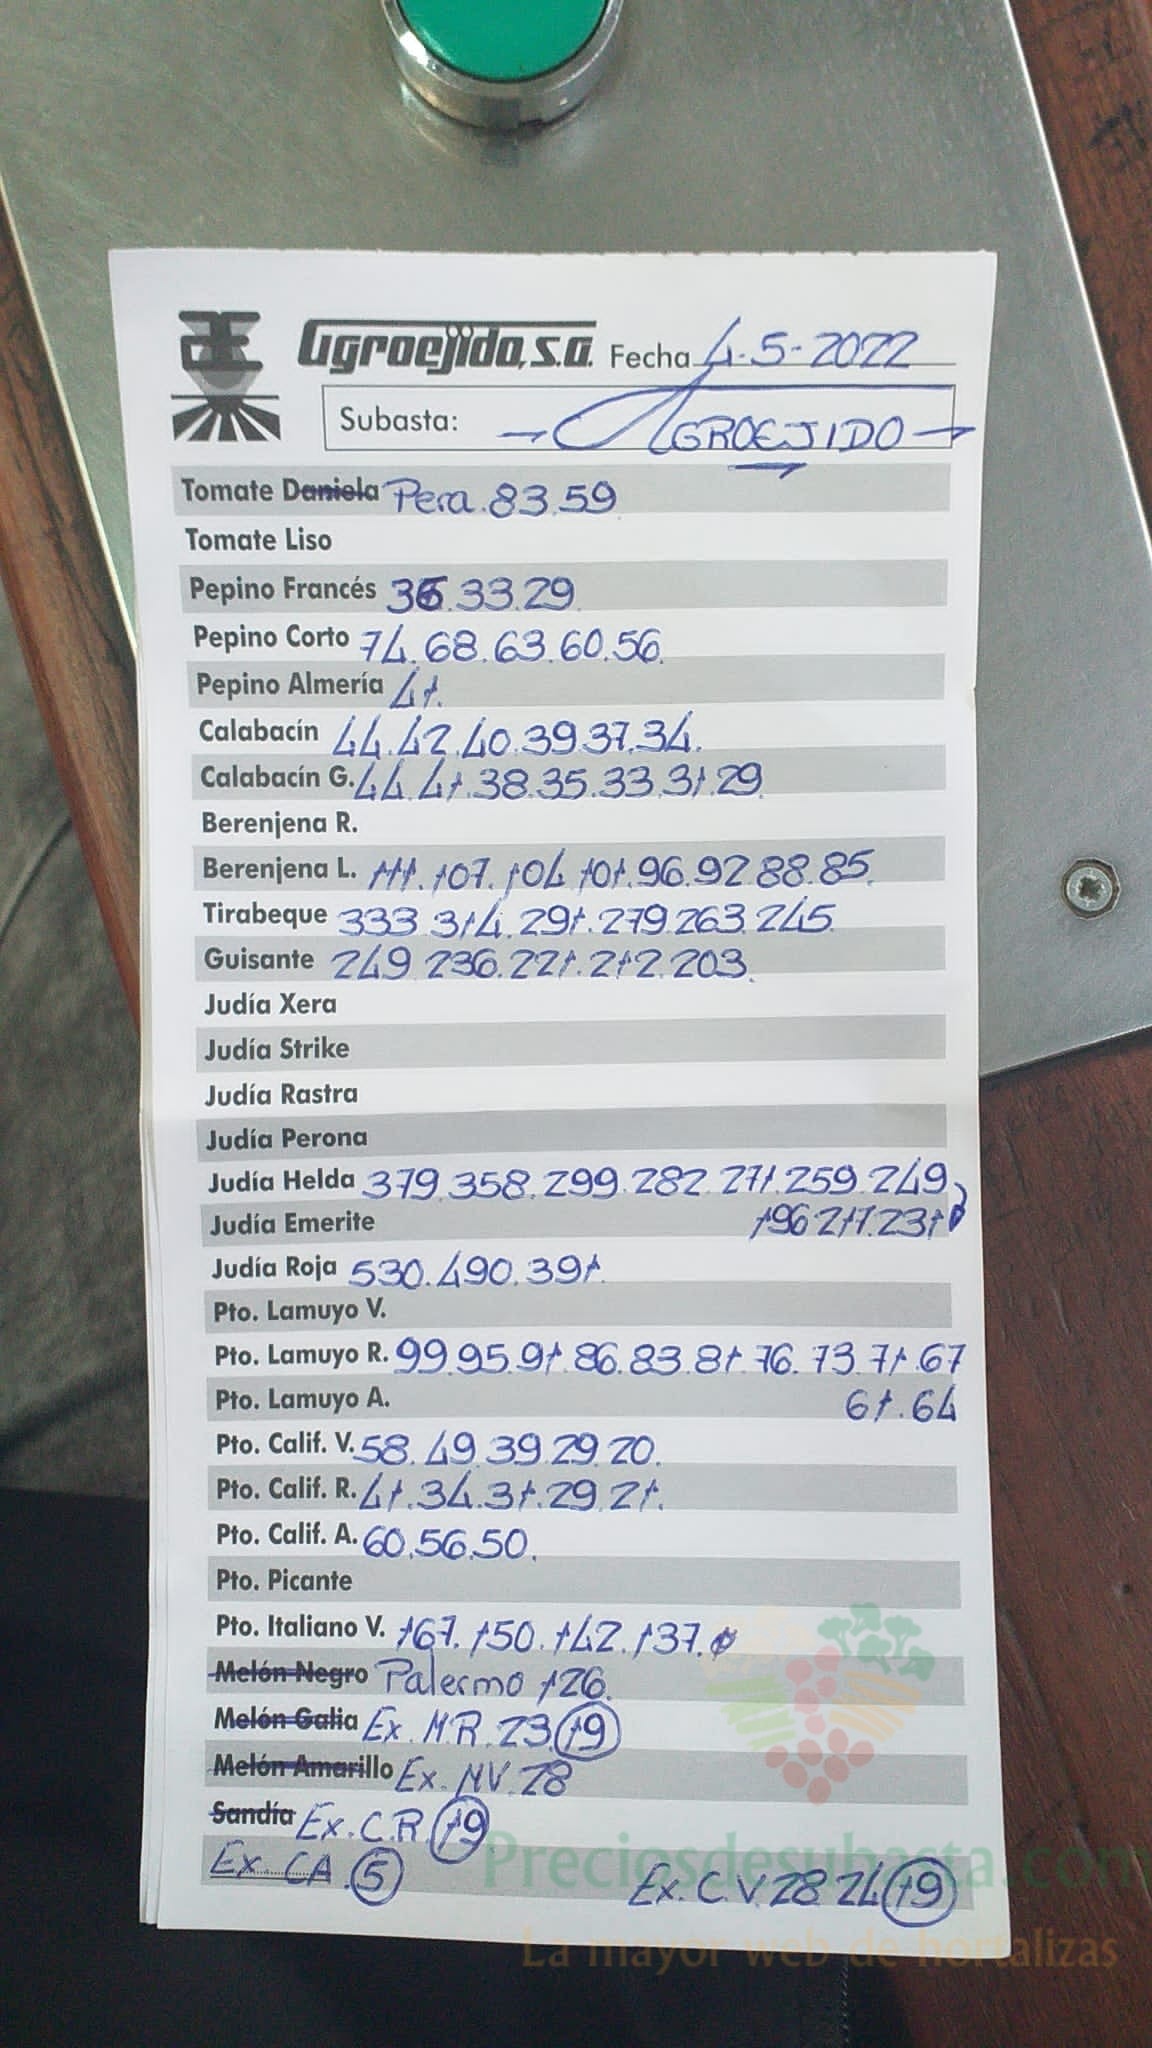 Agroejido, s.a. Fecha 4-5-2022
Subasta: AGROEJIDO
Tomate Daniela Pera.83.59
Tomate Liso
Pepino Francés 36.33.29
Pepino Corto 74.68.63.60.56.
Pepino Almería 41.
Calabacín 44.42.40.39.37.34.
Calabacín G. 44.41.38.35.33.31.29
Berenjena R.
Berenjena L. 111.107.104.101.96.92.88.85.
Tirabeque 333.314.291.279.263.245.
Guisante 249.236.221.212.203.
Judía Xera
Judía Strike
Judía Rastra
Judía Perona
Judía Helda 379.358.299.282.271.259.249
Judía Emerite 196.217.231
Judía Roja 530.490.391.
Pto. Lamuyo V.
Pto. Lamuyo R. 99.95.91.86.83.81.76.73.71.67
Pto. Lamuyo A. 61.64
Pto. Calif. V. 58.49.39.29.20.
Pto. Calif. R. 41.34.31.29.21.
Pto. Calif. A. 60.56.50.
Pto. Picante
Pto. Italiano V. 167.150.142.137.
Melón Negro Palermo 126.
Melón Galia Ex.M.R.23 19
Melón Amarillo Ex.MV.28
Sandía Ex.C.R. 19
Ex CA. 5 Ex.C.V.28 24 19
Preciosdesubasta.com
La mayor web de hortalizas